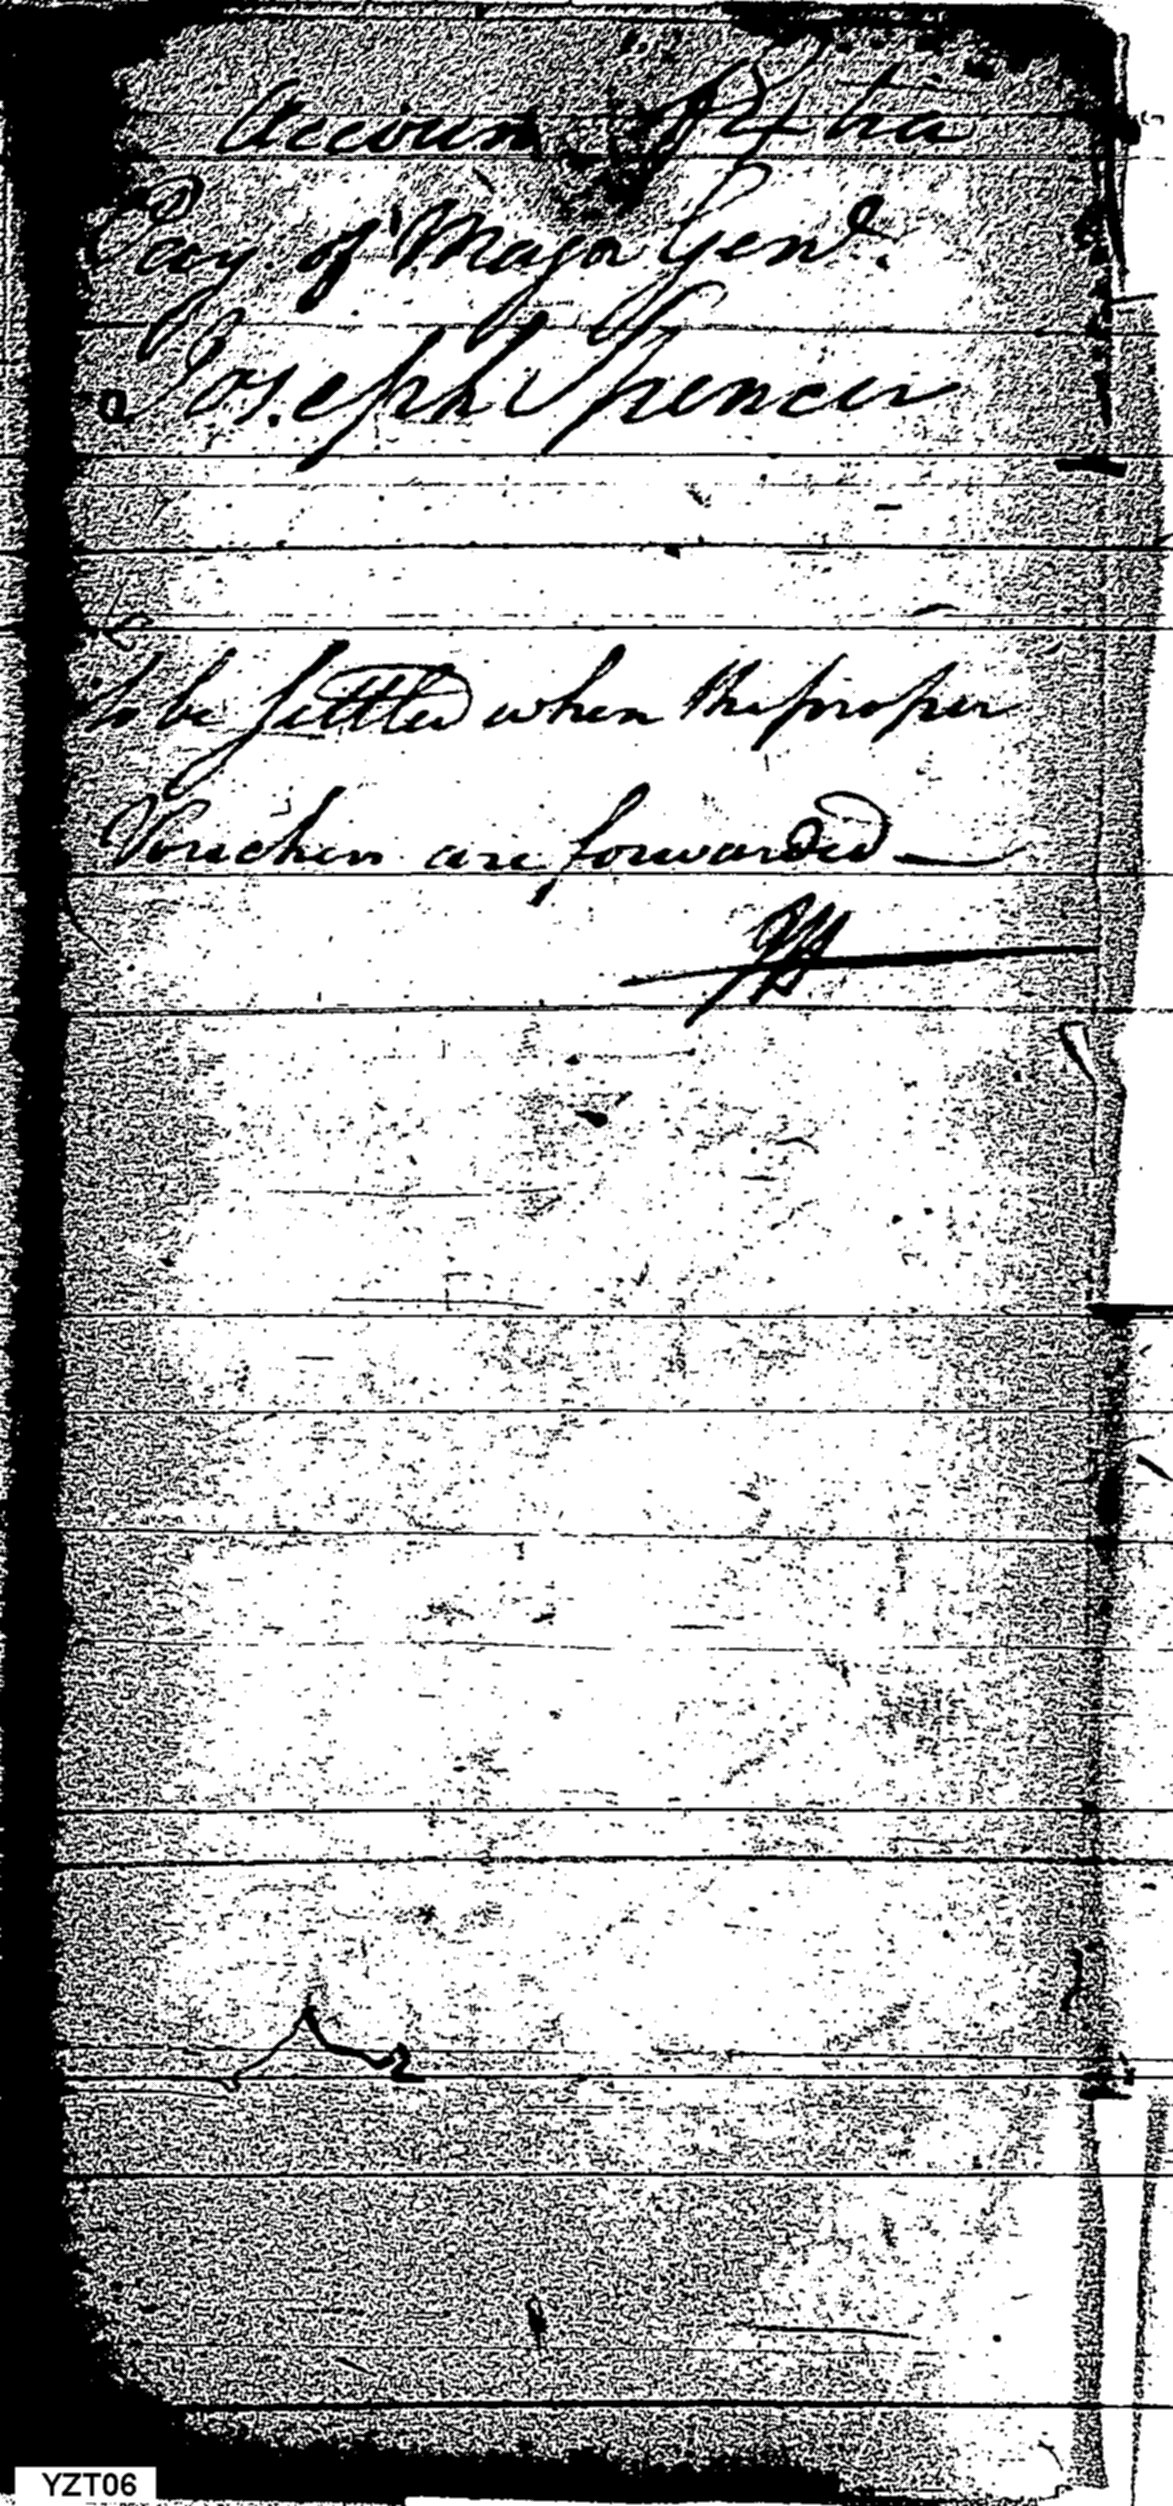 Account of Extra
Pay. of Major Genl.
Joseph Spencer
to be settled when the proper
Vouchers are forwarded
YZT06